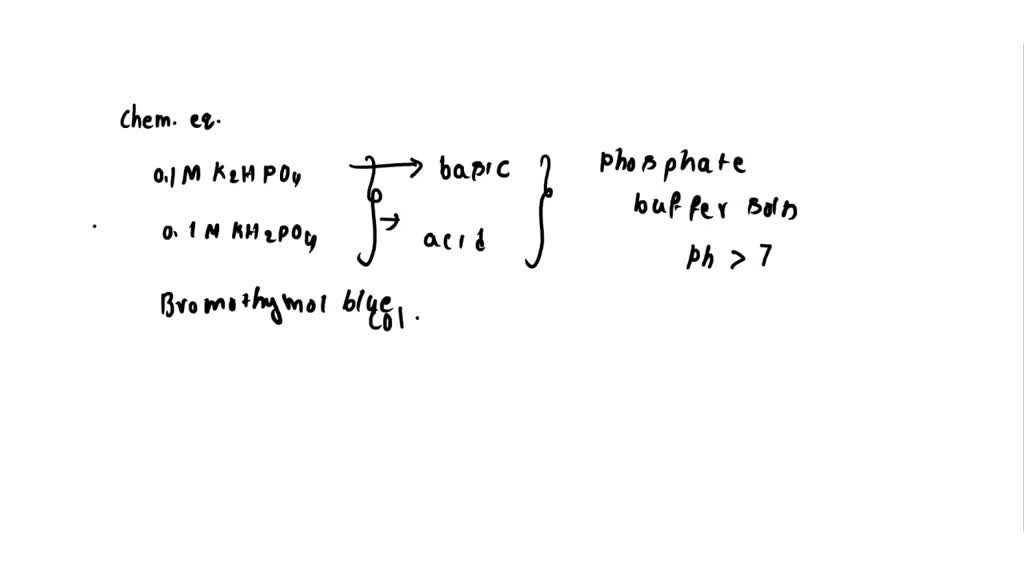 Chem. eq.
0.1 M K2HPO4 → basic
0.1 M KH2PO4 → acid
phosphate
buffer soln
ph > 7
Bromothymol blue